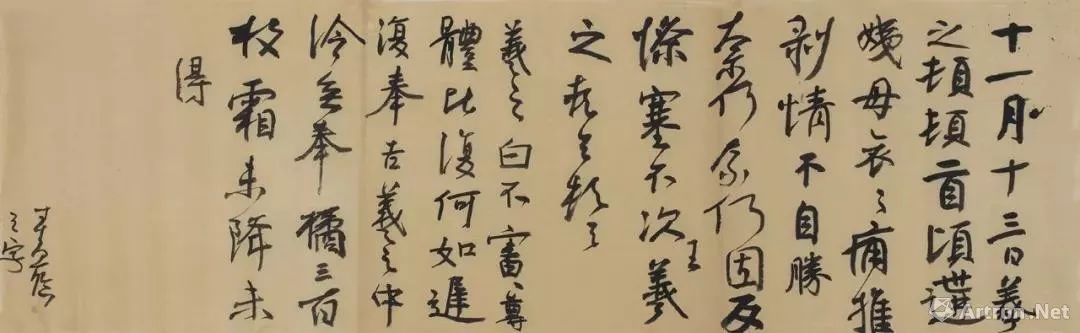 十一月十三日羲
之頓頓首頃遘
姨母哀々痛摧
剥情不自勝
奈何奈何因反
惨塞不次王羲
之頓首頓首
羲之白不審尊
體比復何如遲
復奉告羲之中
冷無奉橘三百
枚霜未降未
得
Artron.Net